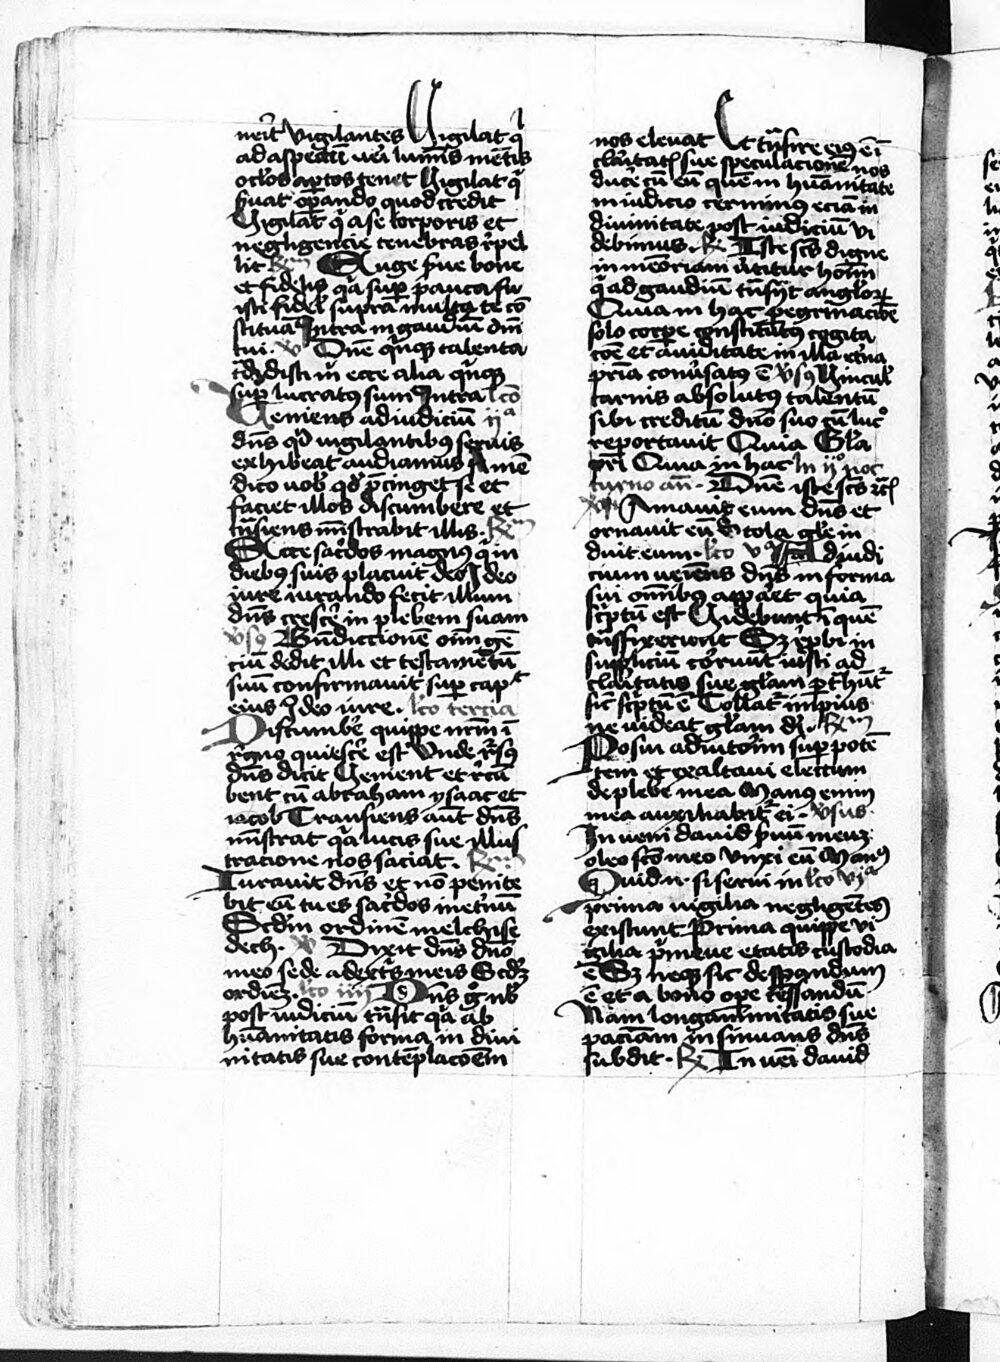 nerit vigilantes Vigilat qi
ad aspectū ueri luminis mentis
oclos aptos tenet Vigilat q
seruat opando quod credit
Vigilat q a se torporis et
negligencie tenebras repel
lit Rm Euge serue bone
et fidelis qa super pauca fu
isti fidel supra multa te cō
stituā Intra in gaudium dni
tui. v Dne quinq talenta
tradidisti m ecce alia quinq
sup lucratus sum Intra lco
Veniens ad iudiciū ija
dns qd vigilantibus seruis
exhibeat audiamus Amē
dico uob qd pcinget se et
faciet illos discumbere et
transiens mnstrabit illis. Rm
Ecce sacdos magnus q in
diebus suis placuit deo Ideo
iure iurando fecit illum
dns crescere in plebem suam
vsq Bndiccionē oim gē
cium dedit illi et testamētū
suū confirmauit sup cap
eius Ideo iure. lco tercia
Discumbe quippe nrm ī
regno quiescē est Unde rsq
dns dicit Venient et rcū
bent cū abraham ysaac et
iacob Transiens aut dns
mnstrat qa lucis sue illus
tracione nos saciat. Rm
Iurauit dns et nō penite
bit eū tu es sacdos in etnū
Scdm ordinē melchise
dech. v Dixit dns dno
meo sede a dextris meis Scdm
ordiez. lco iiij Dns g nb
post iudiciū trāsit qa ab
humanitatis forma in diui
nitatis sue contēplacoem
nos eleuat Et trāsire eius ē ī
claritatē sue speculacionē nos
ducē cū eū quē in huānitate
in iudicio cernimus eciā in
diuinitate post iudiciū vi
debimus. R Iste scs digne
in memoriam utitur homīm
q ad gaudium trāsijt anglor
Quia in hac pegrinacōe
solo corpe constitutus cogita
cōe et auiditate in illa etna
pria conusatus ē vsq Vincul
carnis absolutus talentū
sibi creditū dno suo cū luc
reportauit Quia Gla
pri Quia in hac In ijo noc
turno an. Dne iste scs
Amauit eum dns et
ornauit eū stola gle in
duit eum. lco va Ad iudi
cium ueniens dns in forma
sui omibus appāet quia
scptum est Videbunt ī quē
transfixerunt Sz repbi in
suppliciū coruunt iusti ad
claritatis sue glam pthūt
sic scptum ē Tollat impius
ne uideat glam di. Rm
Posui adiutorim sup potē
tem et exaltaui electum
de plebe mea Manus enim
mea auxiliabit ei. vsus
Inueni dauid suū meuz
oleo sco meo vnxi eū Manus
Quid n. si serui in lco vja
prima uigilia negligētes
existunt Prima quippe vi
gilia pmeue etatis custodia
ē Sz neq sic despandum
ē et a bono ope cessandū
Nam longanimitatis sue
paciam insinuans dns
subdit. R Inueni dauid